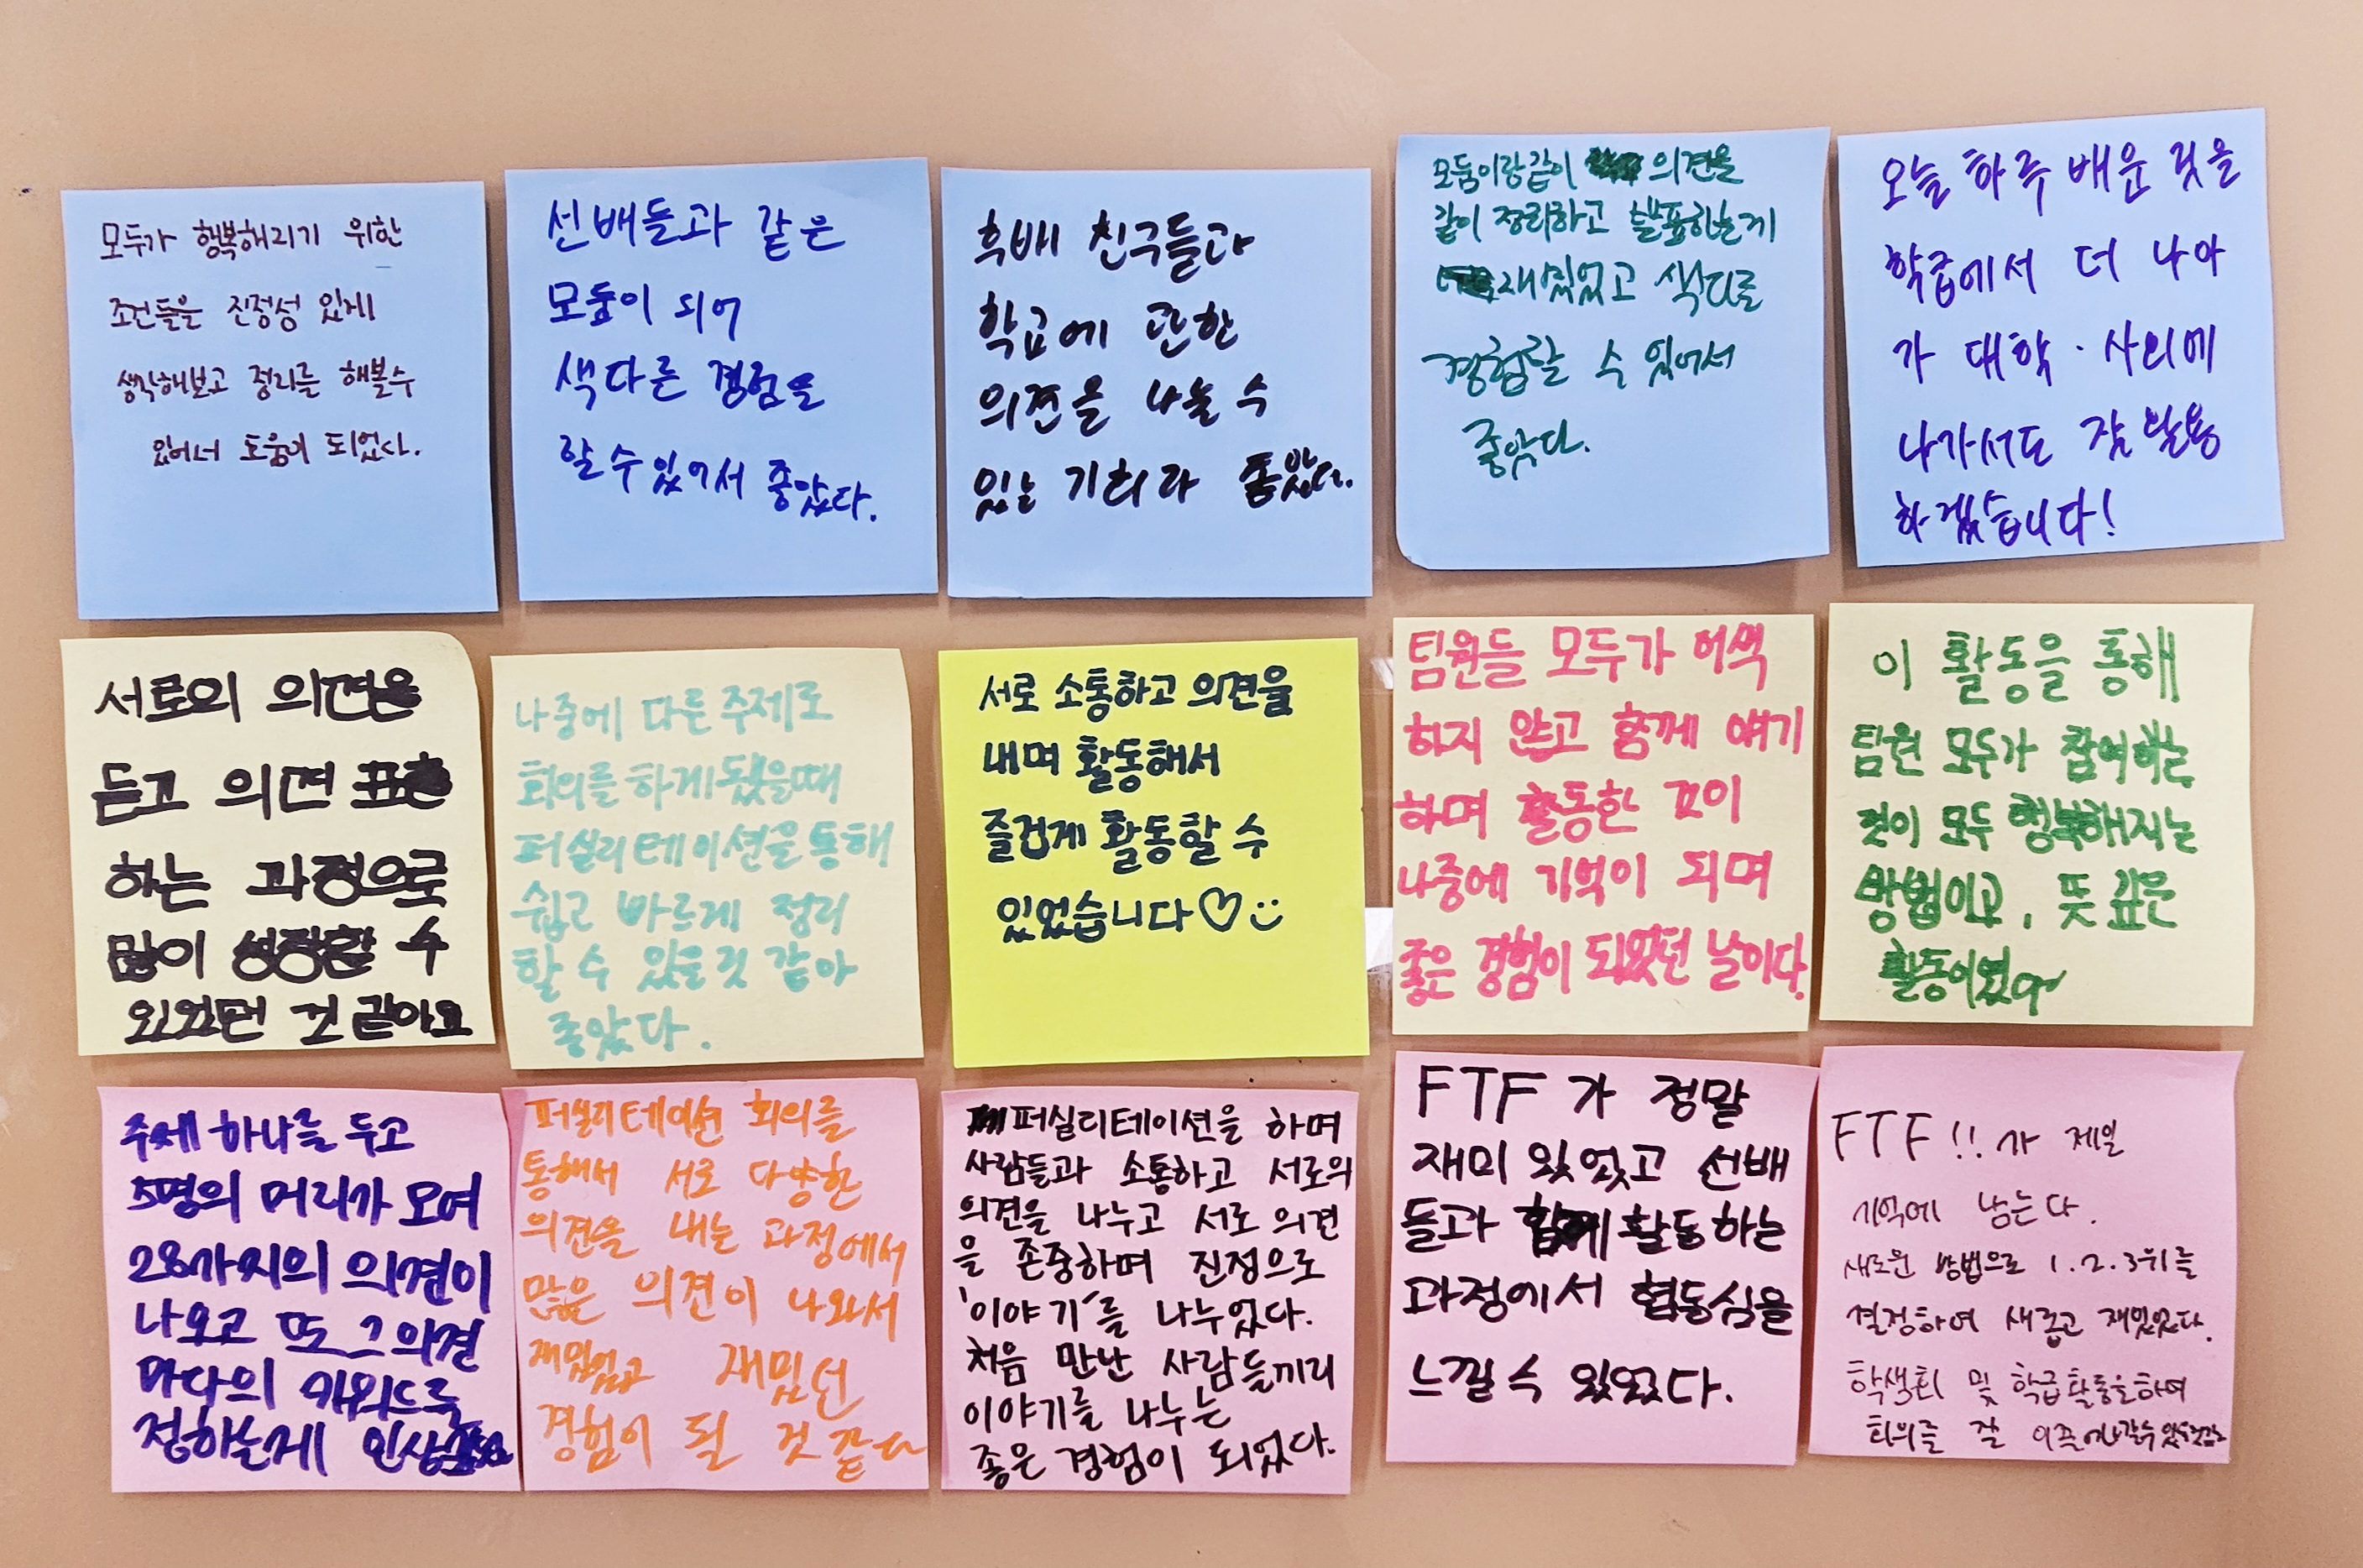 모두가 행복해지기 위한
조건들을 진정성 있게
생각해보고 정리를 해볼수
있어서 도움이 되었다.
선배들과 같은
모둠이 되어
색다른 경험을
할 수 있어서 좋았다.
후배 친구들과
학급에 관한
의견을 나눌 수
있는 기회라 좋았다.
모둠이랑같이 의견을
같이 정리하고 발표하는게
재밌었고 색다를
경험할 수 있어서
좋았다.
오늘 하루 배운 것을
학급에서 더 나아
가 대학·사회에
나가서도 잘 활용
하겠습니다!
서로의 의견을
듣고 의견 표출
하는 과정으로
많이 성장할 수
있었던 것 같아요
나중에 다른 주제로
회의를 하게됐을때
퍼실리테이션을 통해
쉽고 빠르게 정리
할 수 있을것 같아
좋았다.
서로 소통하고 의견을
내며 활동해서
즐겁게 활동할 수
있었습니다♡
팀원들 모두가 어색
하지 않고 함께 얘기
하며 활동한 것이
나중에 기억이 되며
좋은 경험이 되었던 날이다.
이 활동을 통해
팀원 모두가 참여하는
것이 모두 행복해지는
방법이고, 뜻 깊은
활동이었다
주제 하나를 두고
5명의 머리가 모여
28가지의 의견이
나오고 또 그 의견
마다의 키워드를
정하는게 인상
퍼실리테이션 회의를
통해서 서로 다양한
의견을 내는 과정에서
많은 의견이 나와서
재밌었고 재밌던
경험이 될 것 같다
퍼실리테이션을 하며
사람들과 소통하고 서로의
의견을 나누고 서로 의견
을 존중하며 진정으로
'이야기'를 나누었다.
처음 만난 사람들끼리
이야기를 나누는
좋은 경험이 되었다.
FTF 가 정말
재미 있었고 선배
들과 함께 활동하는
과정에서 협동심을
느낄 수 있었다.
FTF!! 가 제일
기억에 남는다.
새로운 방법으로 1.2.3위를
결정하여 새롭고 재밌었다.
학생회 및 학급활동을하여
회의를 잘